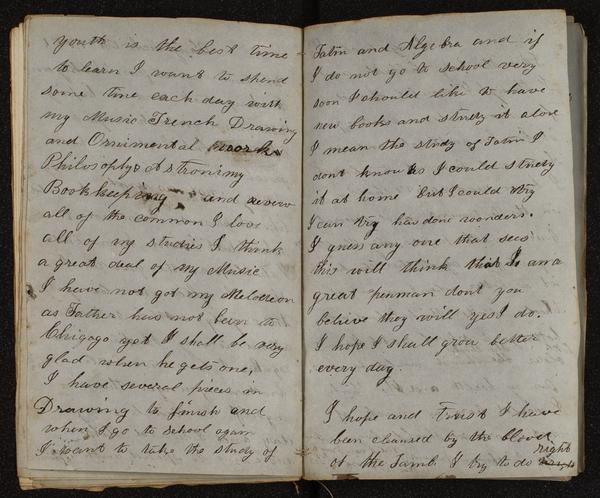 youth is the best time
to learn I want to spend
some time each day with
my Music French Drawing
and Ornimental work
Philosophy & Astronimy
Bookkeeping and review
all of the common I love
all of my studies I think
a great deal of my Music
I have not got my Melodeon
as Father has not been to
Chigago yet I shall be very
glad when he gets one,
I have several pieces in
Drawing to finish and
when I go to school again
I want to take the study of
Latin and Algebra and if
I do not go to school very
soon I should like to have
new books and study it alone
I mean the study of Latin I
dont know as I could study
it at home but I could try
I can try has done wonders.
I guess any one that sees
this will think that I am a
great penman dont you
believe they will yes I do.
I hope I shall grow better
every day.
I hope and Trust I have
been clansed by the blood
of the Lamb. I try to do right